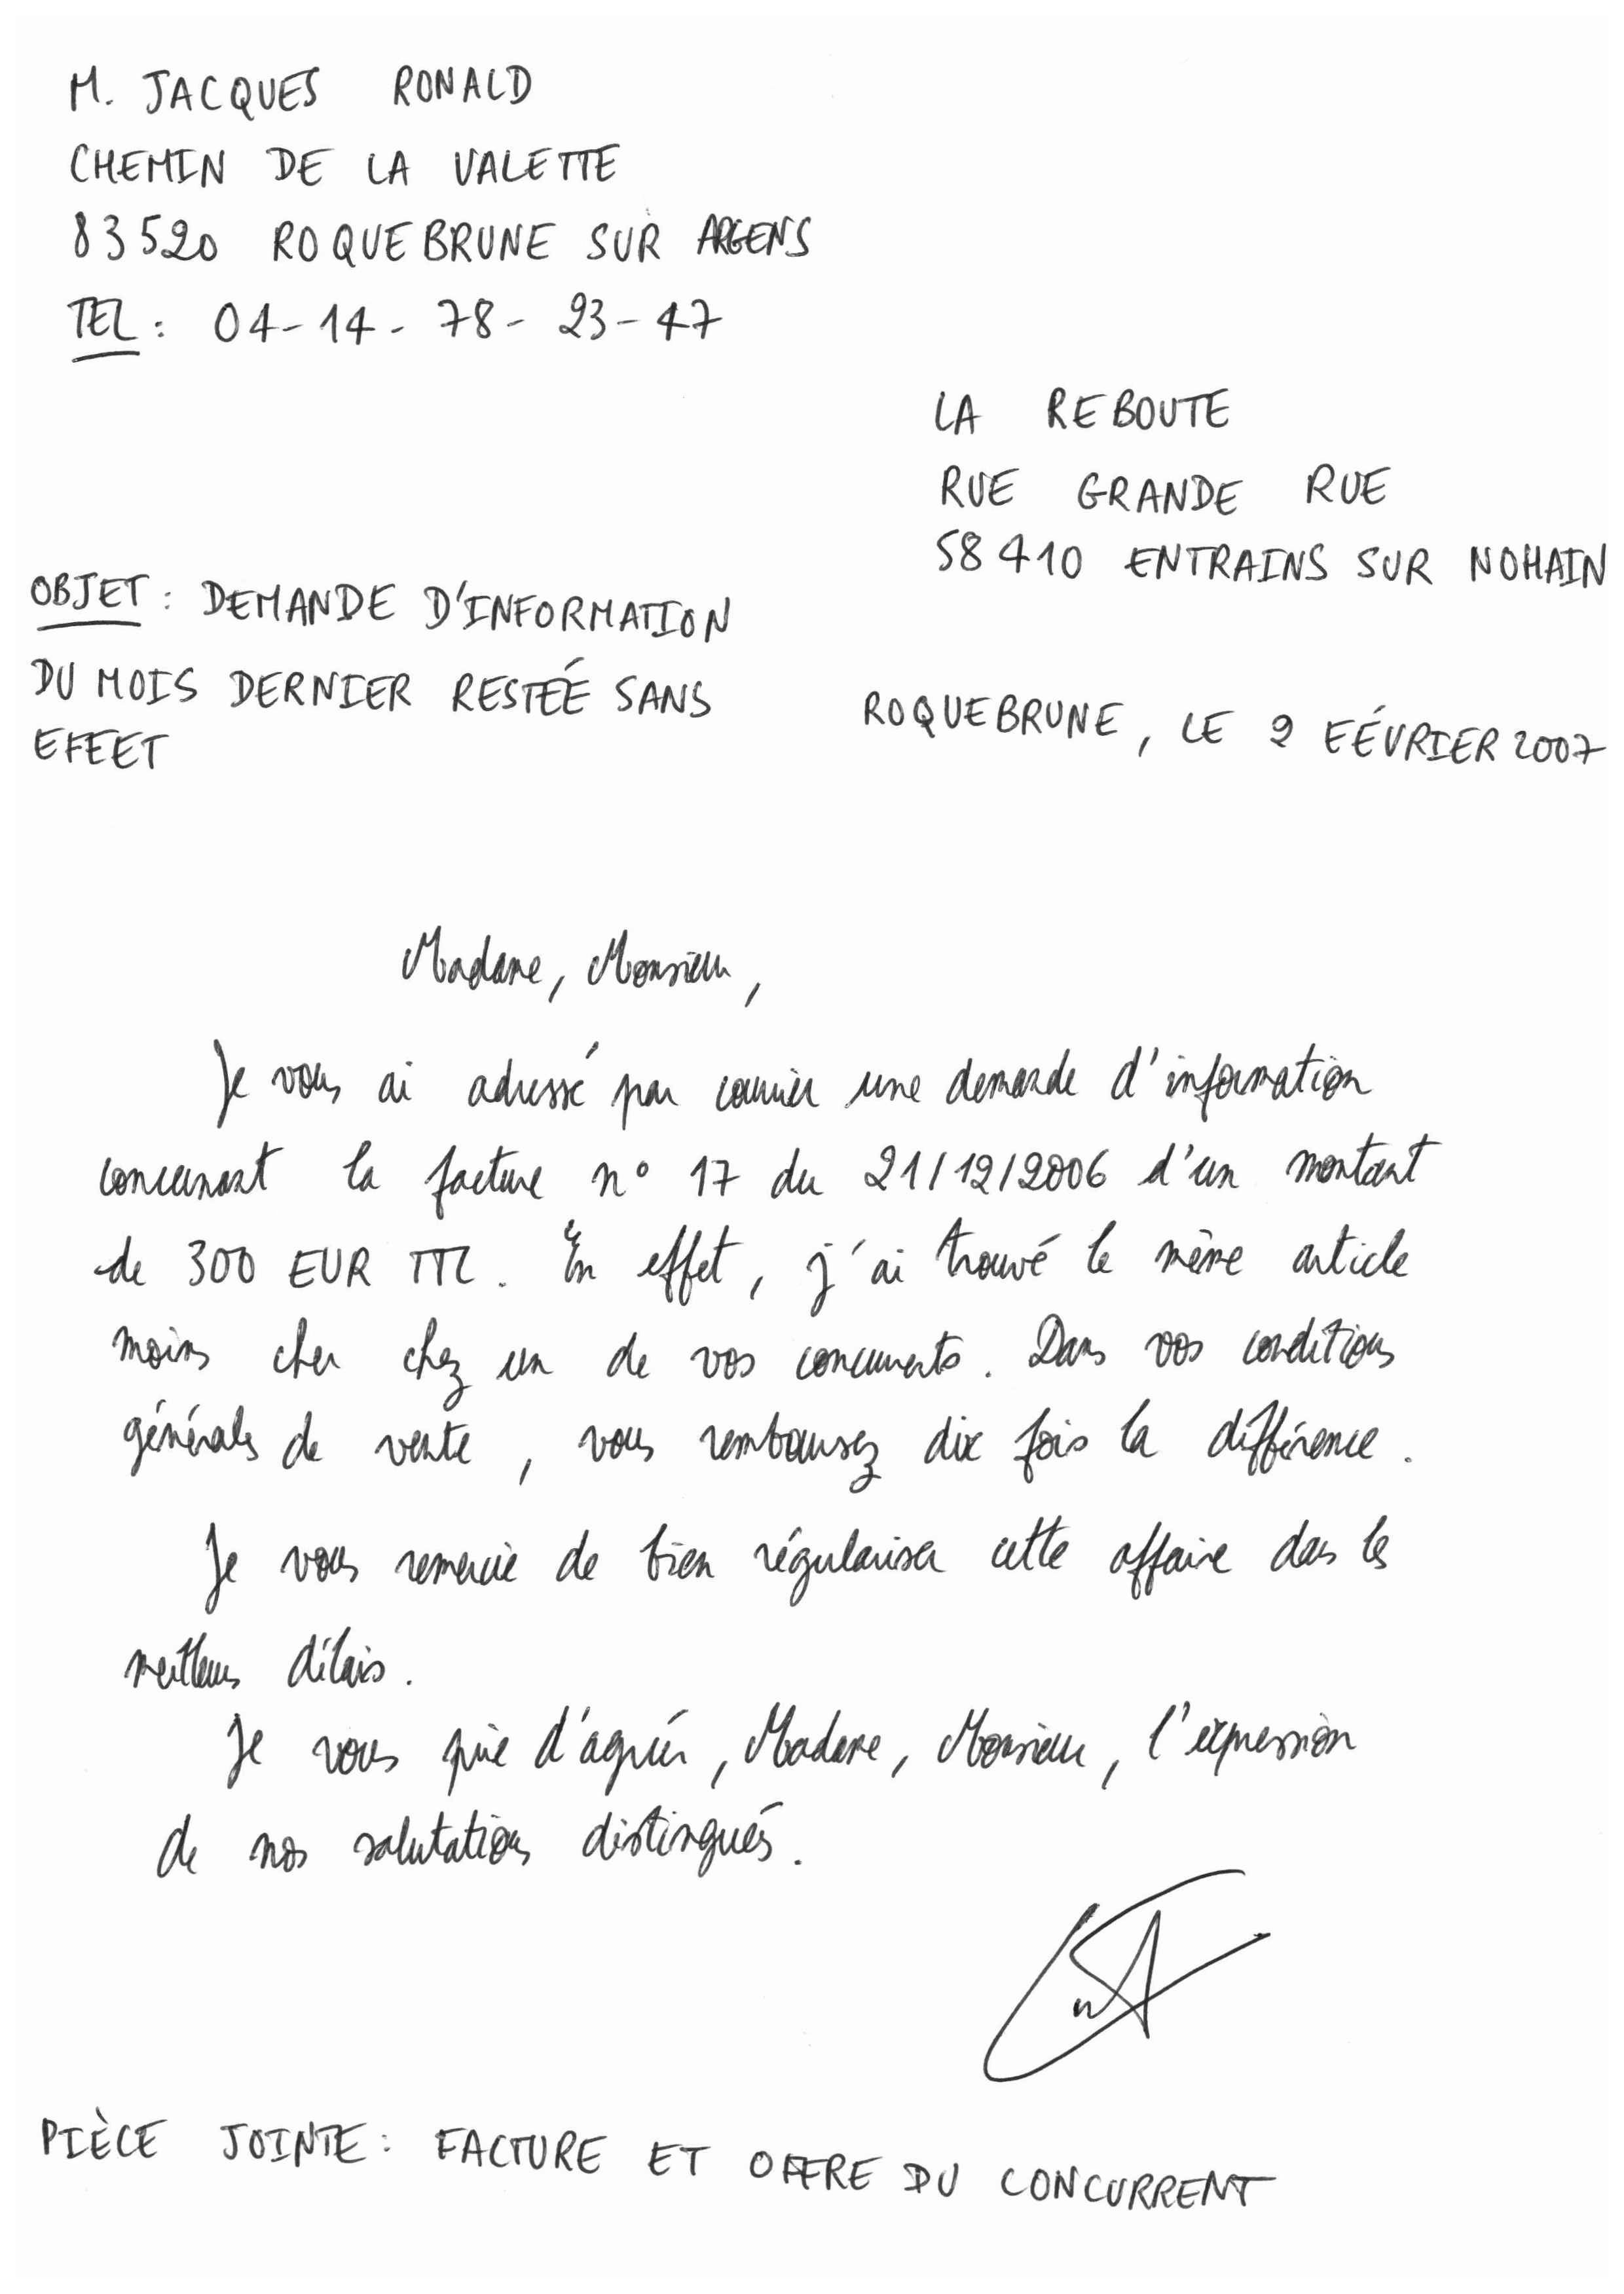 M. JACQUES RONALD
CHEMIN DE LA VALETTE
83520 ROQUEBRUNE SUR ARGENS
TEL : 04-14-78-23-47
LA REBOUTE
RUE GRANDE RUE
58410 ENTRAINS SUR NOHAIN
OBJET : DEMANDE D'INFORMATION
DU MOIS DERNIER RESTÉE SANS
EFFET
ROQUEBRUNE, LE 2 FÉVRIER 2007
Madame, Monsieur,
Je vous ai adressé par courrier une demande d'information
concernant la facture n° 17 du 21/12/2006 d'un montant
de 300 EUR TTC. En effet, j'ai trouvé le même article
moins cher chez un de vos concurrents. Dans vos conditions
générales de vente, vous remboursez dix fois la différence.
Je vous remercie de bien régulariser cette affaire dans les
meilleurs délais.
Je vous prie d'agréer, Madame, Monsieur, l'expression
de nos salutations distingués.
PIÈCE JOINTE : FACTURE ET OFFRE DU CONCURRENT